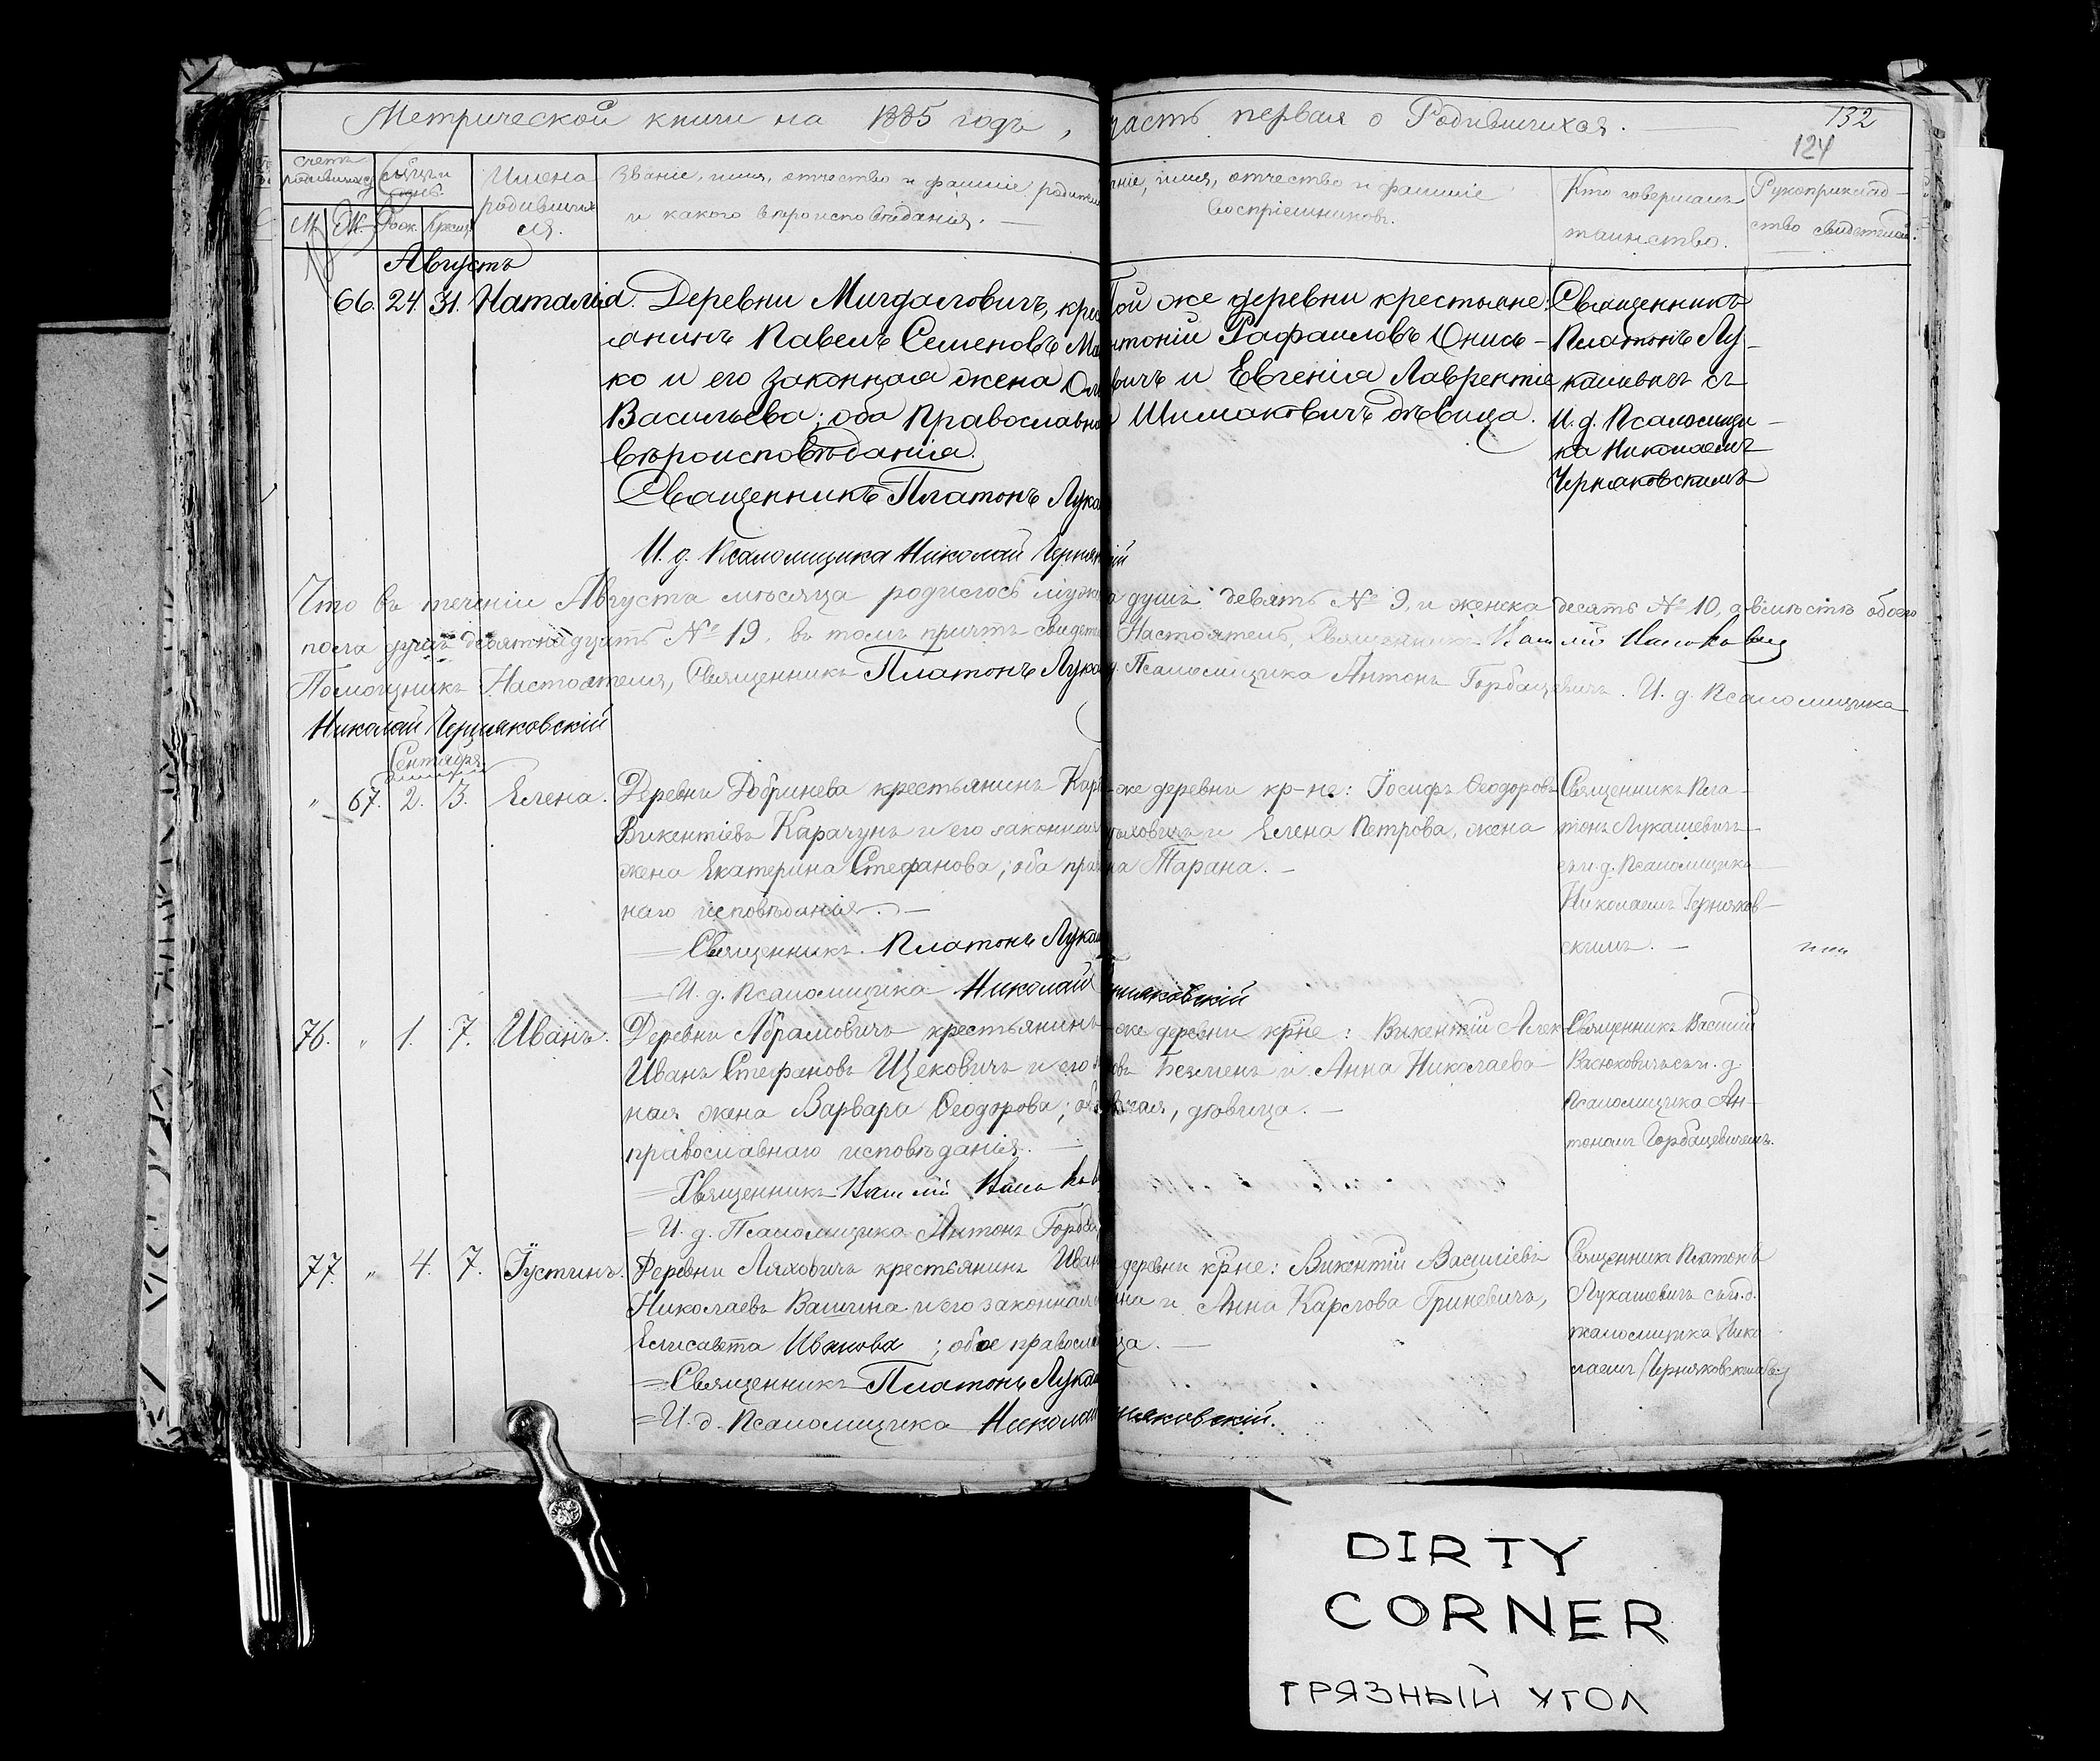 Метрической книги на 1885 годъ, часть первая о Родившихся.
132
124
Счетъ родившихся
М. Ж.
Рожд. Крещ.
Имена родившихся.
Званіе, имя, отчество и фамиліе родител
и какого вѣроисповѣданія.
аніе, имя, отчество и фамиліе
воспріемниковъ.
Кто совершалъ
таинство.
Рукоприклад-
ство свидетелей
Августъ
66. 24. 31. Наталія.
Деревни Мигдаловичъ, крес
янинъ Павелъ Семеновъ Ма
ко и его законная жена Ол
Васильева; оба Православн
вѣроисповѣданія.
Священникъ Платонъ Лука
И. д. Псаломщика Николай Черняк ій
Той же деревни крестьяне:
нтоній Рафаиловъ Онись-
вичъ и Евгенія Лаврентіе
Шимаковичъ дѣвица.
Священникъ
Платонъ Лу-
кашевичъ съ
И. д. Псаломщи-
ка Николаемъ
Черняковскимъ
Что въ теченіи Августа мѣсяца родилось мужс а душъ девять № 9, и женска десять № 10, а вмѣстѣ обоего
пола душъ девятнадцать № 19, въ томъ причтъ свидет Настоятель, Священникъ
Помощникъ Настоятеля, Священникъ Платонъ Лука д. Псаломщика Антонъ Горбацевичъ. И. д. Псаломщика
Николай Черняковскій
Сентября
" 67. 2. 3. Елена.
Деревни Добринева крестьянинъ Кар
Викентіевъ Карачунъ и его законная
жена Екатерина Стефанова; оба прав
наго исповѣданія. —
= Священникъ Платонъ Лука
= И. д. Псаломщика Николай няковскій
же деревни кр-не: Іосифъ Ѳеодоровъ
ховичъ и Елена Петрова, жена
на Тарана. —
Священникъ Пла-
тонъ Лукашевичъ
съ и. д. Псаломщика
Николаемъ Черняков-
скимъ. —
76. " 1. 7. Иванъ.
Деревни Абрамовичъ крестьянинъ
Иванъ Стефановъ Щековичъ и его з
ная жена Варвара Ѳеодорова; об
православнаго исповѣданія. —
= Священникъ
= И. д. Псаломщика Антонъ Горба
же деревни кр-не: Викентій Алек
овъ Безменъ и Анна Николаева
ская, дѣвица. —
Священникъ Василій
Васюковичъ съ и. д.
Псаломщика Ан-
тономъ Горбацевичемъ.
77. " 4. 7. Іустинъ.
Деревни Ляховичъ крестьянинъ Иван
Николаевъ Вашина и его законная
Елисавета Иванова; обое правосла
= Священникъ Платонъ Лука
= И. д. Псаломщика Николай няковскій.
деревни кр-не: Викентій Василіевъ
ина и Анна Карлова Гриневичъ,
ца. —
Священникъ Платонъ
Лукашевичъ съ и. д.
псаломщика Нико
лаемъ Черняковскимъ
DIRTY
CORNER
ГРЯЗНЫЙ УГОЛ